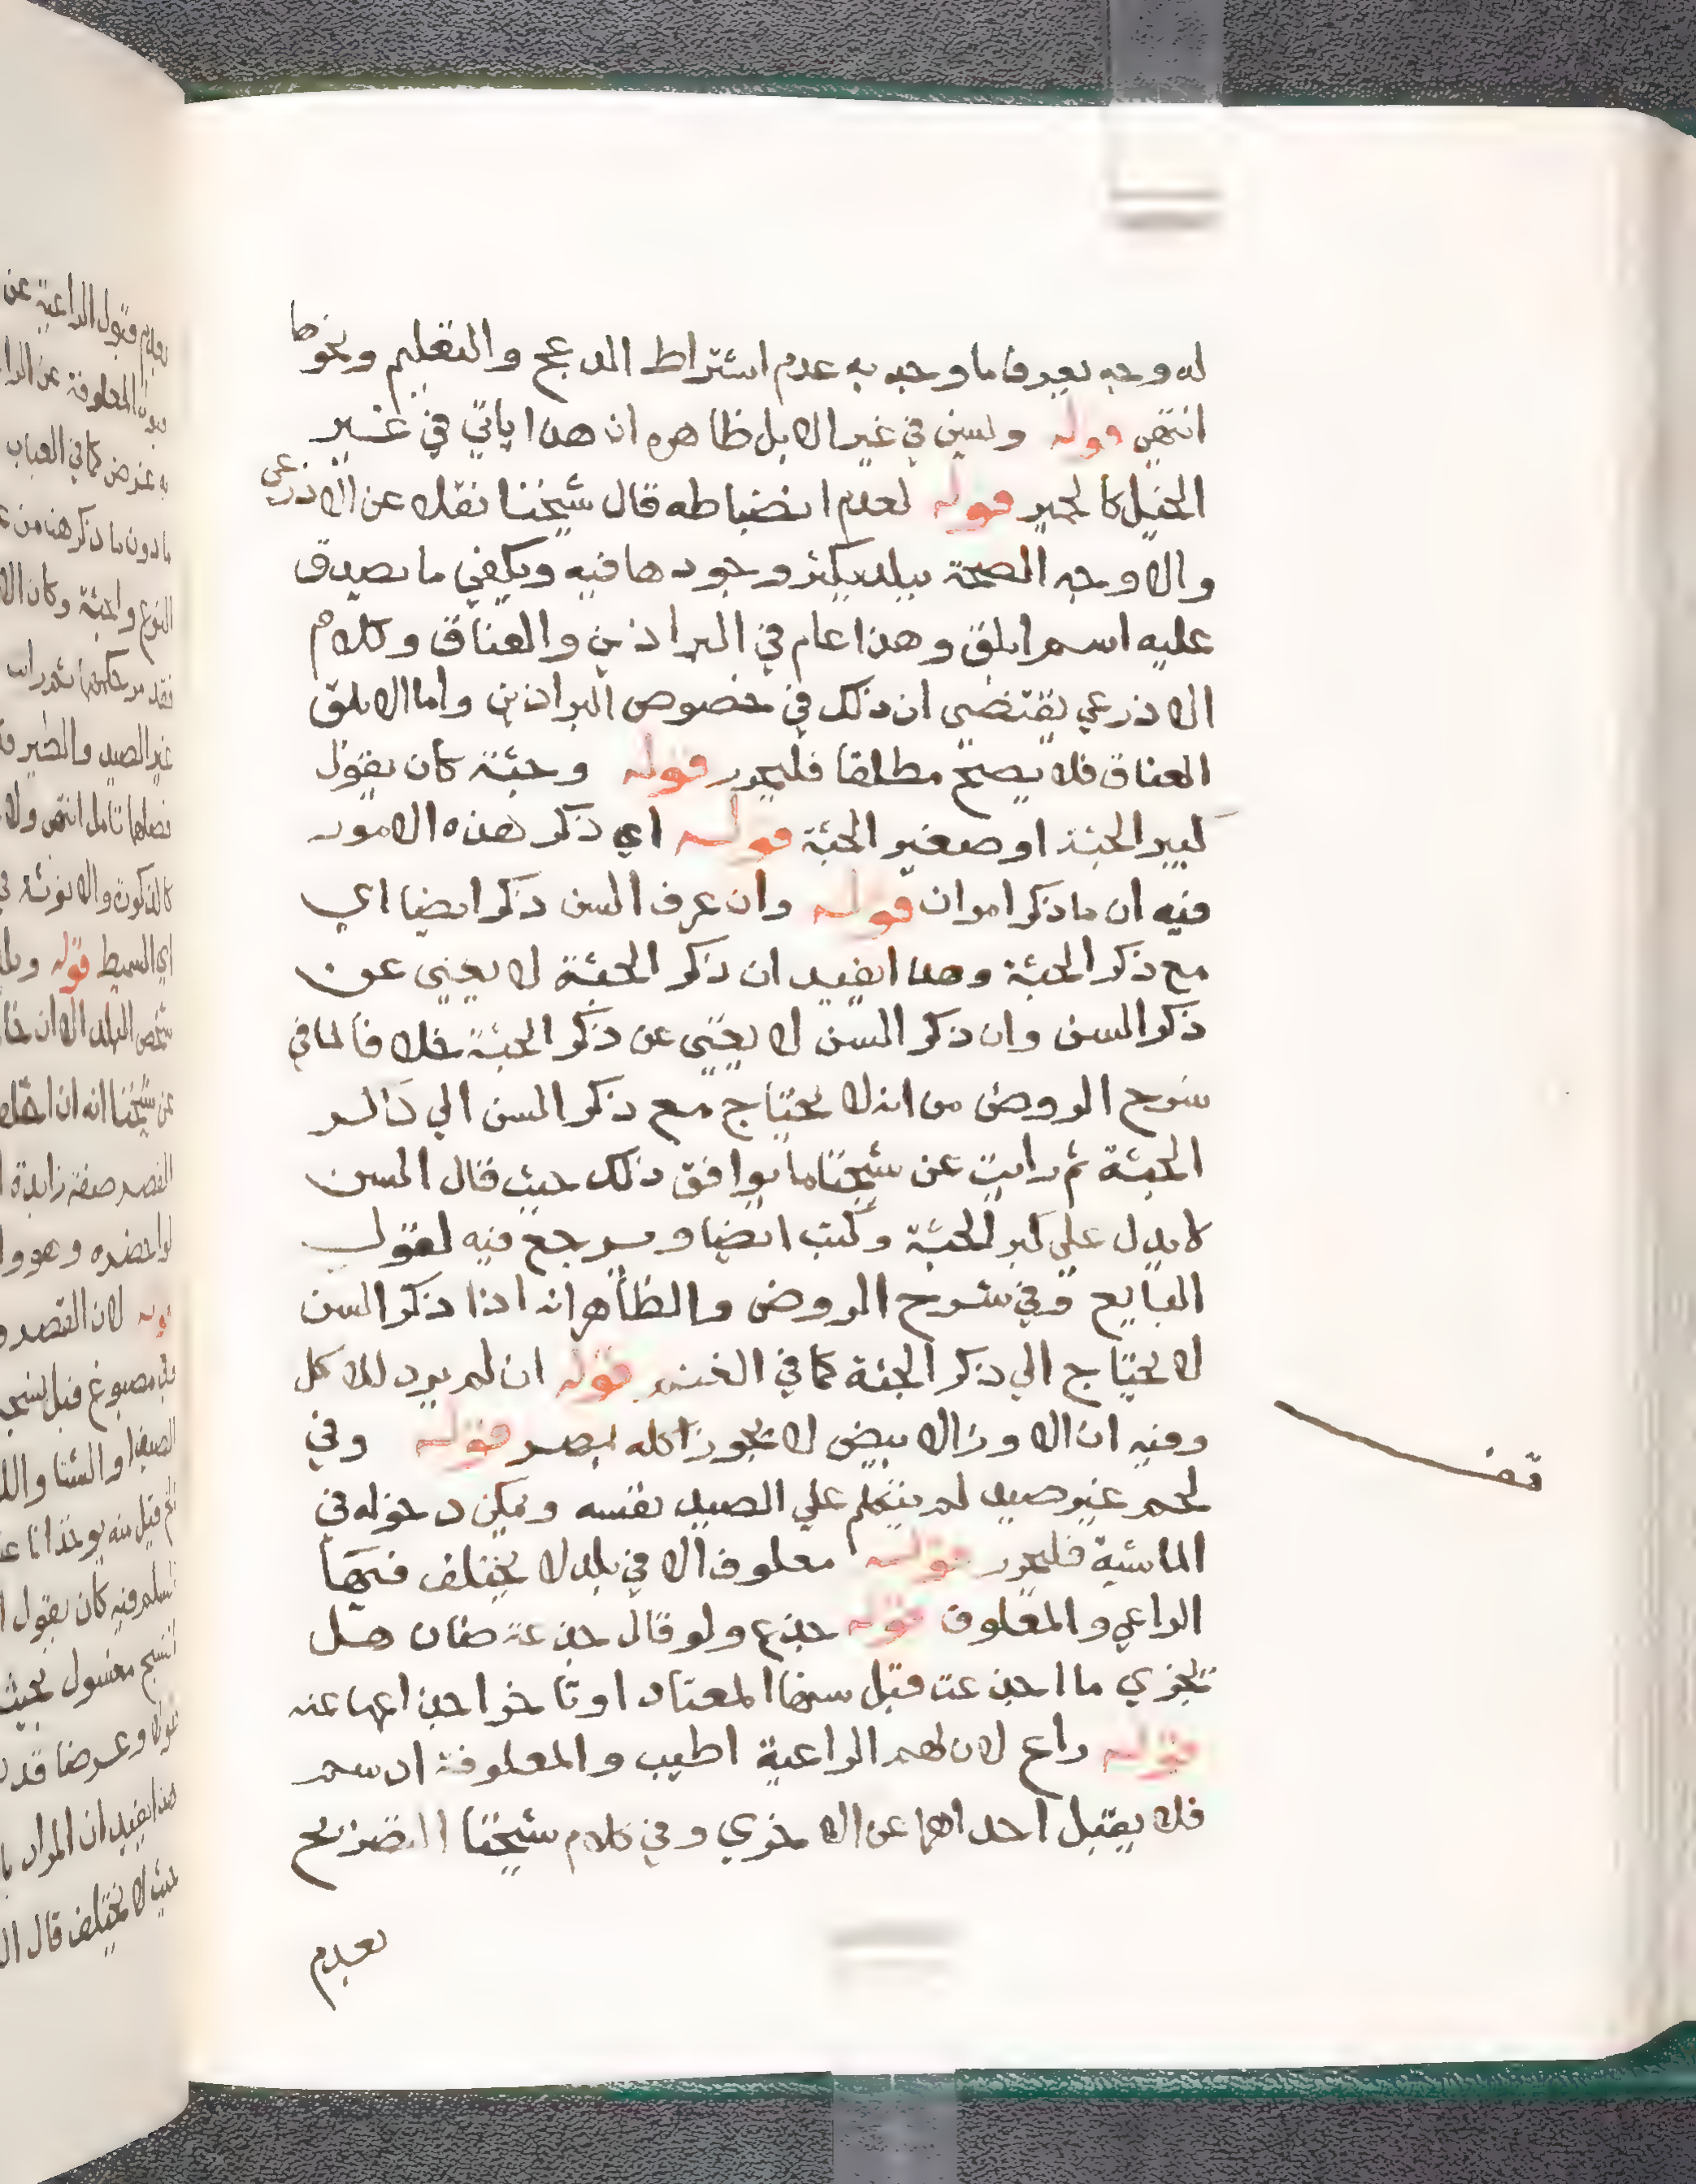 له وجه يعرفا ما وجه به عدم اشتراط الدعج والتعليم ونحوها
انتهى قوله وسن في غير الابل ظاهره ان هذا ياتي في غير
الخيل كالحمير قوله لعدم انضباطه قال شيخنا نقلا عن الاذرعي
والاوجه الصحة ببلد يكثر وجودها فيه ويكفي ما يصدق
عليه اسم ابلق وهذا عام في البراذين والعناق وكلام
الاذرعي يقتضي ان ذلك في خصوص البراذين واما الابلق
العناق فلا يصح مطلقا فليحرر قوله وجثة كان يقول
كبير الجثة او صغير الجثة قوله اي ذكر هذه الامور
فيه ان ما ذكر امران قوله وان عرف السن ذكر ايضا اي
مع ذكر الجثة وهذا يفيد ان ذكر الجثة لا يغني عن
ذكر السن وان ذكر السن لا يغني عن ذكر الجثة خلافا لما في
شرح الروض من انه لا يحتاج مع ذكر السن الي ذكر
الجثة ثم رايت عن شيخنا ما يوافق ذلك حيث قال السن
لا يدل علي كبر الجثة وكتب ايضا ويرجع فيه لقول
البايع وفي شرح الروض والظاهر انه اذا ذكر السن
لا يحتاج الي ذكر الجثة كما في الغنم قوله ان لم يرد للاكل
وفيه ان الاوز الابيض لا يجوز اكله بمصر قوله وفي
لحم غير صيد لم يتكلم علي الصيد نفسه ويمكن دخوله في
الماشية فليحرر قوله معلوف الا في بلد لا يختلف فيها
الراعي والمعلوف قوله جذع ولو قال جذعة ضان هل
تجزي ما اجذعت قبل سنها المعتاد او تاخر اجذاعها عنه
قوله راع لان لحم الراعية اطيب والمعلوفة ادسم
فلا يقبل احداهما عن الاخري وفي كلام شيخنا التصريح
بعدم
قف